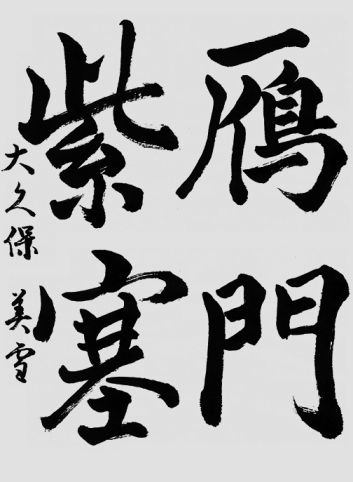 鴈門
紫塞
大久保 美雪